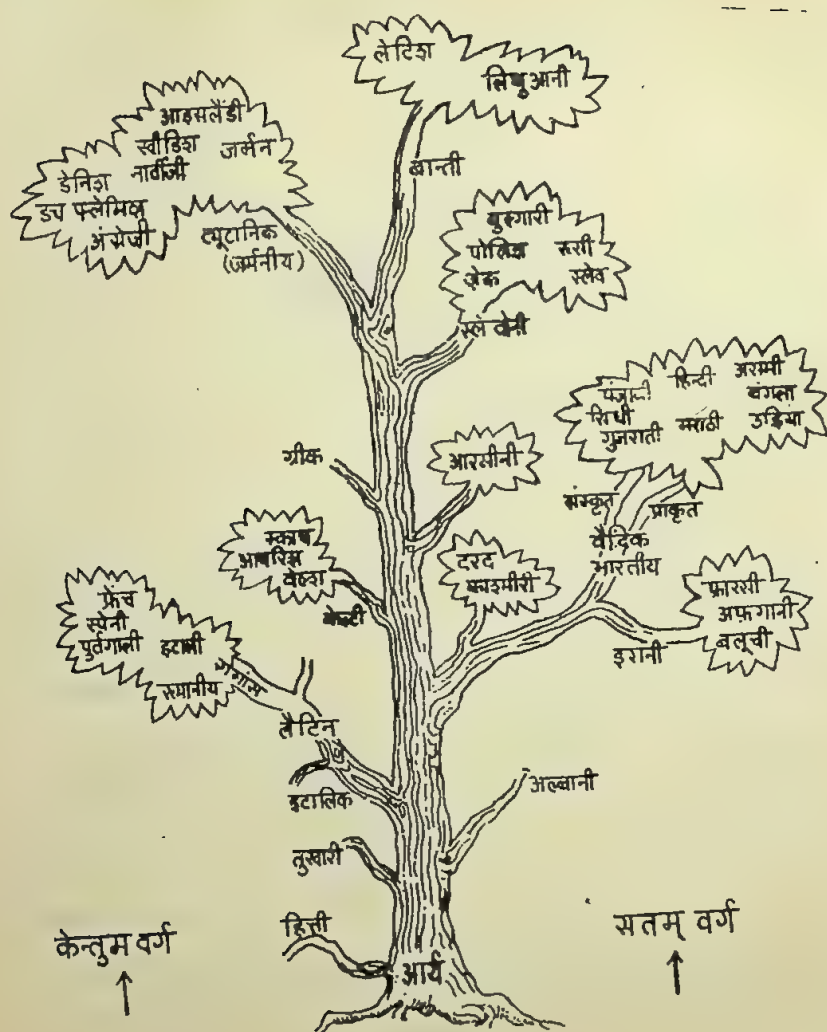 लेटिश
लिथुआनी
आइसलैंडी
स्वीडिश जर्मन
डेनिश नार्वीजी
डच फ्लेमिश
अंग्रेजी
ट्यूटानिक
(जर्मनीय)
बाल्ती
बुल्गारी
पोलिश रूसी
चेक स्लेव
स्लैवोनी
पंजाबी हिन्दी असमी
बंगला
सिंधी
गुजराती मराठी उड़िया
संस्कृत प्राकृत
वैदिक
भारतीय
ग्रीक
आरमीनी
स्काच
आयरिश
वेल्श
केल्टी
दरद
काश्मीरी
फ़ारसी
अफ़गानी
बलूची
इरानी
फ्रेंच
स्पेनी
पुर्तगाली इटाली
रूमानीय
लैटिन
इटालिक
अल्बानी
तुखारी
हित्ती
केन्तुम वर्ग
सतम् वर्ग
आर्य